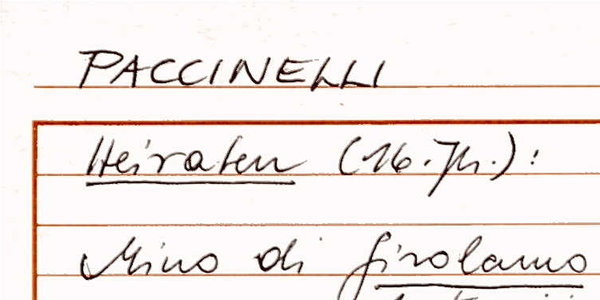 PACCINELLI
Heiraten (16. Jh.):
Mino di Girolamo